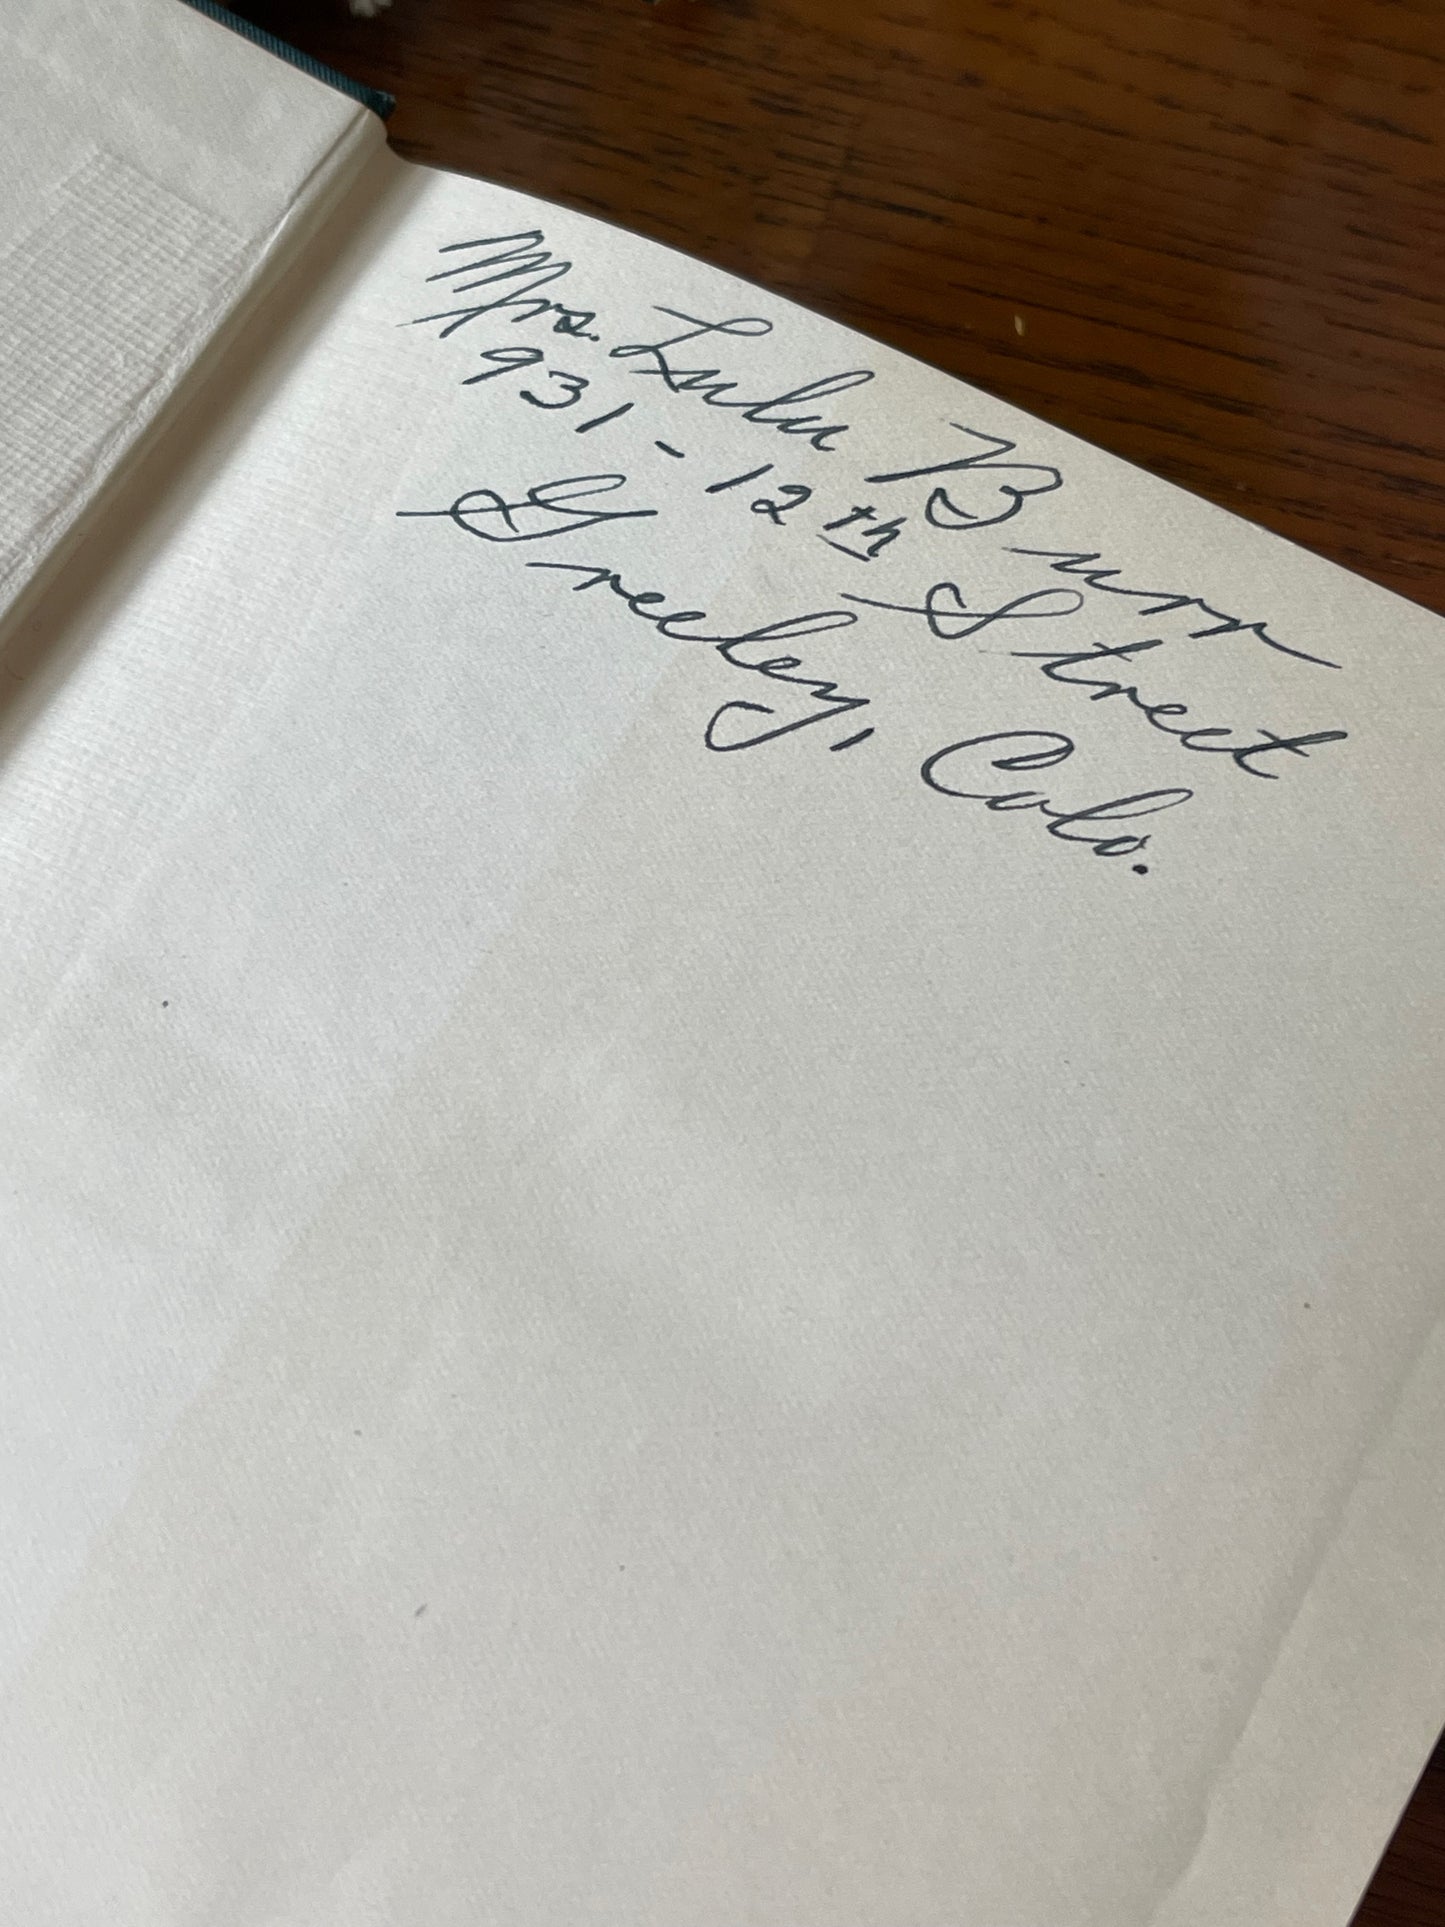 Mrs. Lulu Burr
931 - 12th Street
Greeley, Colo.